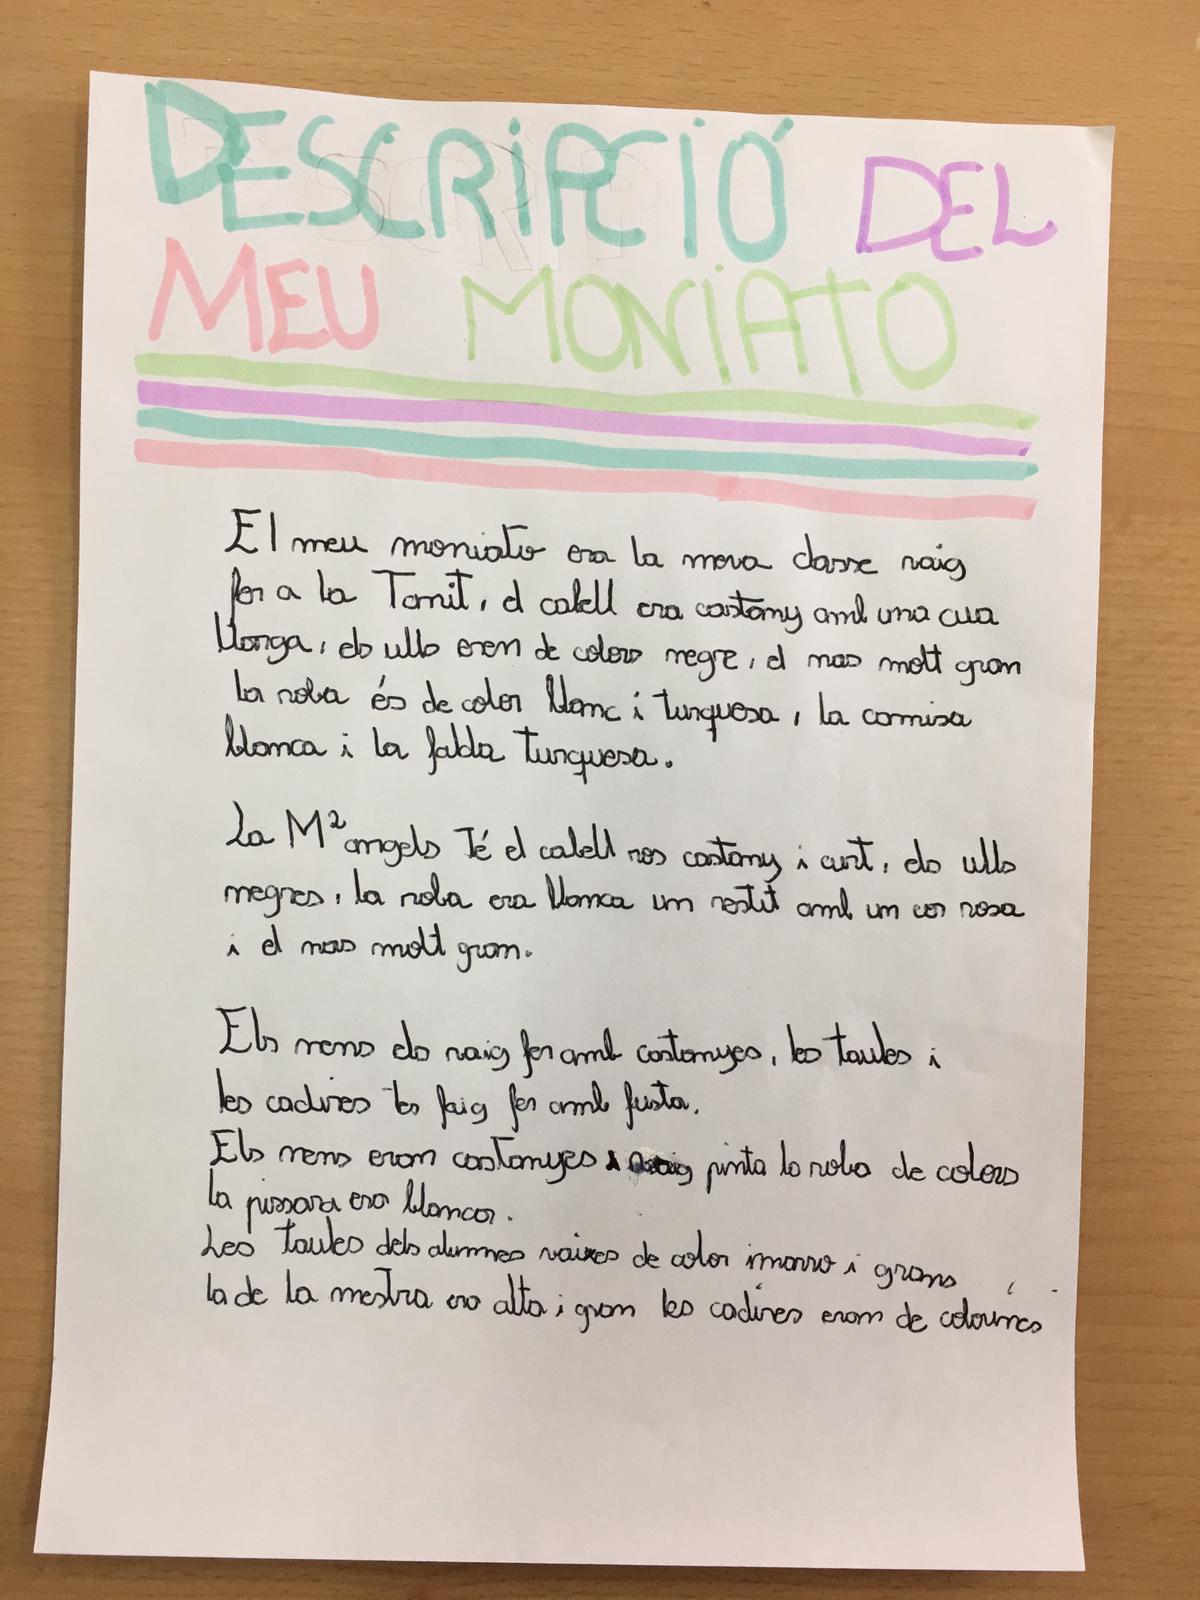 DESCRIPCIÓ DEL
MEU MONIATO
El meu moniato era la meva classe vaig
fer a la Tanit, el cabell era castany amb una cua
llarga, els ulls eren de colors negre, el nas molt gran
la roba és de color blanc i turquesa, la camisa
blanca i la falda turquesa.
La Mª angels Té el cabell ros castany i curt, els ulls
negres, la roba era blanca un vestit amb un cor rosa
i el nas molt gran.
Els nens els vaig fer amb castanyes, les taules i
les cadires les faig fer amb fusta.
Els nens eran castanyes i vaig pinta la roba de colors
la pissara era blancar.
Les taules dels alumnes vaixes de color marro i grans
la de la mestra era alta i gran les cadires eran de colourines